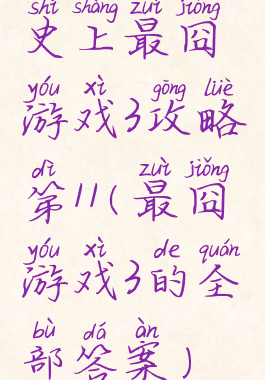 shǐ shàng zuì jiǒng
史上最囧
yóu xì gōng lüè
游戏3攻略
dì zuì jiǒng
第11(最囧
yóu xì de quán
游戏3的全
bù dá àn
部答案)